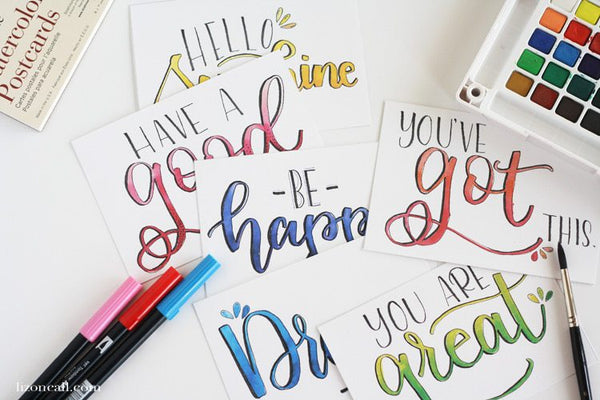 Watercolor
Postcards
HELLO
HAVE A
good
- BE -
happy
YOU'VE
got
THIS.
YOU ARE
great
lizoncall.com